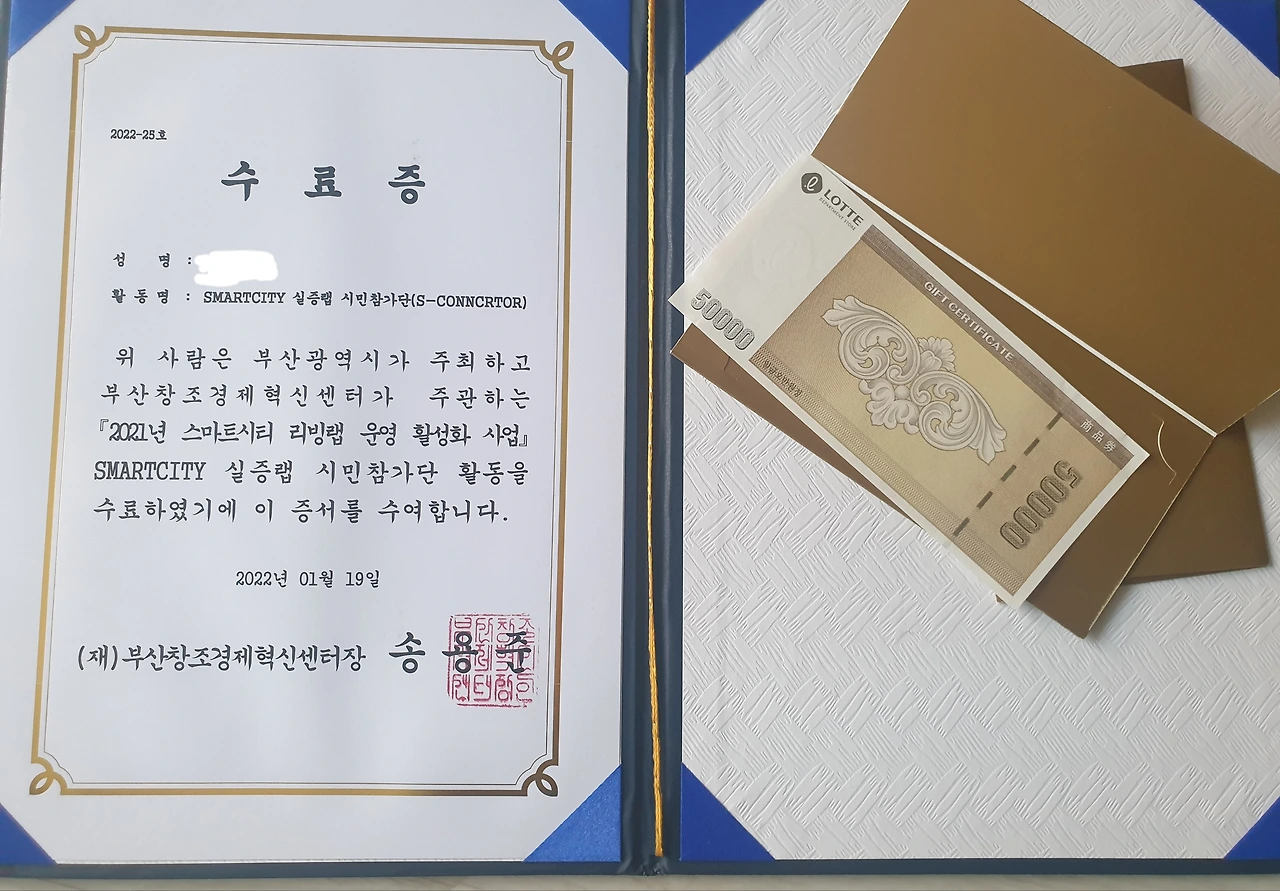 2022-25호
수 료 증
성 명 :
활 동 명 : SMARTCITY 실증랩 시민참가단(S-CONNCRTOR)
위 사람은 부산광역시가 주최하고
부산창조경제혁신센터가 주관하는
『2021년 스마트시티 리빙랩 운영 활성화 사업』
SMARTCITY 실증랩 시민참가단 활동을
수료하였기에 이 증서를 수여합니다.
2022년 01월 19일
(재)부산창조경제혁신센터장 송 용 준
LOTTE
DEPARTMENT STORE
50000
일금오만원정
GIFT CERTIFICATE
商品券
50000